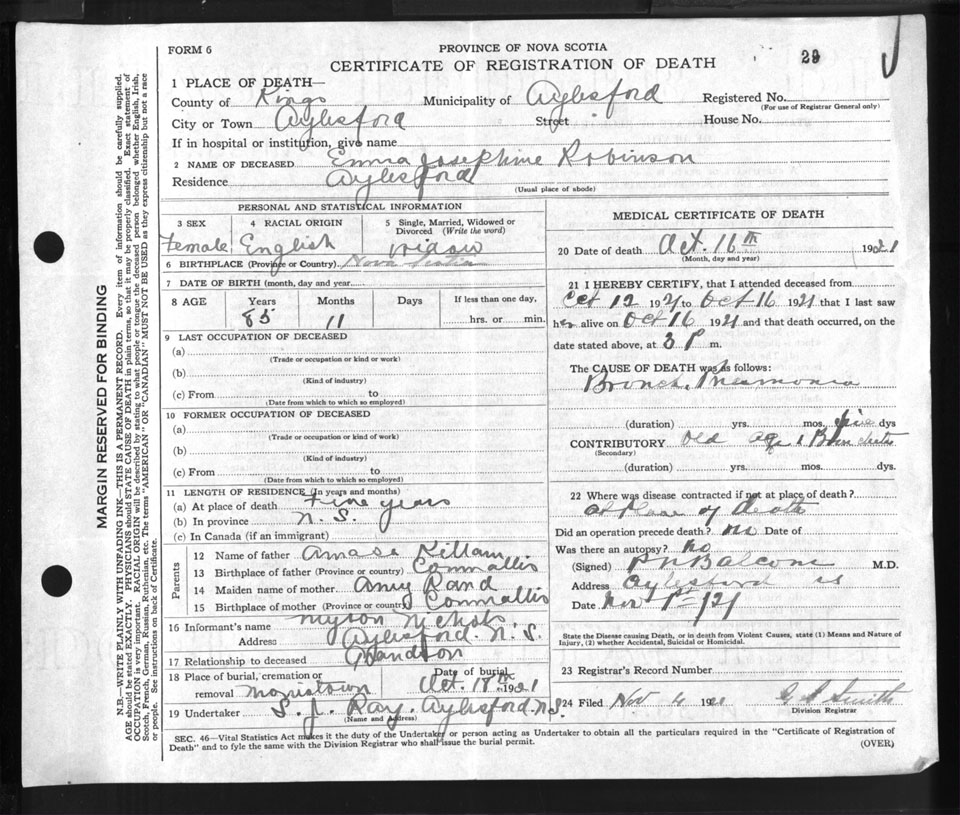 FORM 6
PROVINCE OF NOVA SCOTIA
CERTIFICATE OF REGISTRATION OF DEATH
29
1 PLACE OF DEATH—
County of Kings Municipality of Aylesford Registered No.
(For use of Registrar General only)
City or Town Aylesford Street House No.
If in hospital or institution, give name
2 NAME OF DECEASED Emma Josephine Robinson
Residence Aylesford
(Usual place of abode)
PERSONAL AND STATISTICAL INFORMATION
3 SEX 4 RACIAL ORIGIN 5 Single, Married, Widowed or Divorced (Write the word)
Female English widow
6 BIRTHPLACE (Province or Country) Nova Scotia
7 DATE OF BIRTH (month, day and year)
8 AGE Years Months Days If less than one day,
85 11 hrs. or min.
9 LAST OCCUPATION OF DECEASED
(a)
(Trade or occupation or kind or work)
(b)
(Kind of industry)
(c) From to
(Date from which to which so employed)
10 FORMER OCCUPATION OF DECEASED
(a)
(Trade or occupation or kind of work)
(b)
(Kind of industry)
(c) From to
(Date from which to which so employed)
11 LENGTH OF RESIDENCE (In years and months)
(a) At place of death Five years
(b) In province N. S.
(c) In Canada (if an immigrant)
Parents
12 Name of father Amasa Killam
13 Birthplace of father (Province or country) Cornwallis
14 Maiden name of mother Amy Rand
15 Birthplace of mother (Province or country) Cornwallis
16 Informant's name Myron Nichols
Address Aylesford. N. S.
17 Relationship to deceased Grandson
18 Place of burial, cremation or removal Morristown Date of burial Oct. 18th 1921
19 Undertaker S. J. Ray. Aylesford. N.S.
(Name and address)
MEDICAL CERTIFICATE OF DEATH
20 Date of death Oct. 16th 1921
(Month, day and year)
21 I HEREBY CERTIFY, that I attended deceased from
Oct 12 1921 to Oct 16 1921 that I last saw
her alive on Oct 16 1921 and that death occurred, on
date stated above, at 3 P m.
The CAUSE OF DEATH was as follows:
Bronch. Pneumonia
(duration) yrs. mos. five dys
CONTRIBUTORY old age & Bronchitis
(Secondary)
(duration) yrs. mos. dys.
22 Where was disease contracted if not at place of death?
at Place of death
Did an operation precede death? no Date of
Was there an autopsy? no
(Signed) P N Balcom M.D.
Address Aylesford NS
Date Nov 1st /21
State the Disease causing Death, or in death from Violent Causes, state (1) Means and Nature of
Injury, (2) whether Accidental, Suicidal or Homicidal.
23 Registrar's Record Number
24 Filed Nov 4 1921 Smith
Division Registrar
SEC. 46—Vital Statistics Act makes it the duty of the Undertaker or person acting as Undertaker to obtain all the particulars required in the "Certificate of Registration of
Death" and to fyle the same with the Division Registrar who shall issue the burial permit.
(OVER)
MARGIN RESERVED FOR BINDING
N.B.—WRITE PLAINLY WITH UNFADING INK—THIS IS A PERMANENT RECORD. Every item of information should be carefully supplied.
AGE should be stated EXACTLY. PHYSICIANS should STATE CAUSE OF DEATH in plain terms, so that it may be properly classified. Exact statement of
OCCUPATION is very important. RACIAL ORIGIN will be described by stating to what people or tongue the deceased person belonged whether English, Irish,
Scotch, French, German, Russian, Ruthenian, etc. The terms "AMERICAN" OR "CANADIAN" MUST NOT BE USED as they express citizenship but not a race
or people. See instructions on back of Certificate.